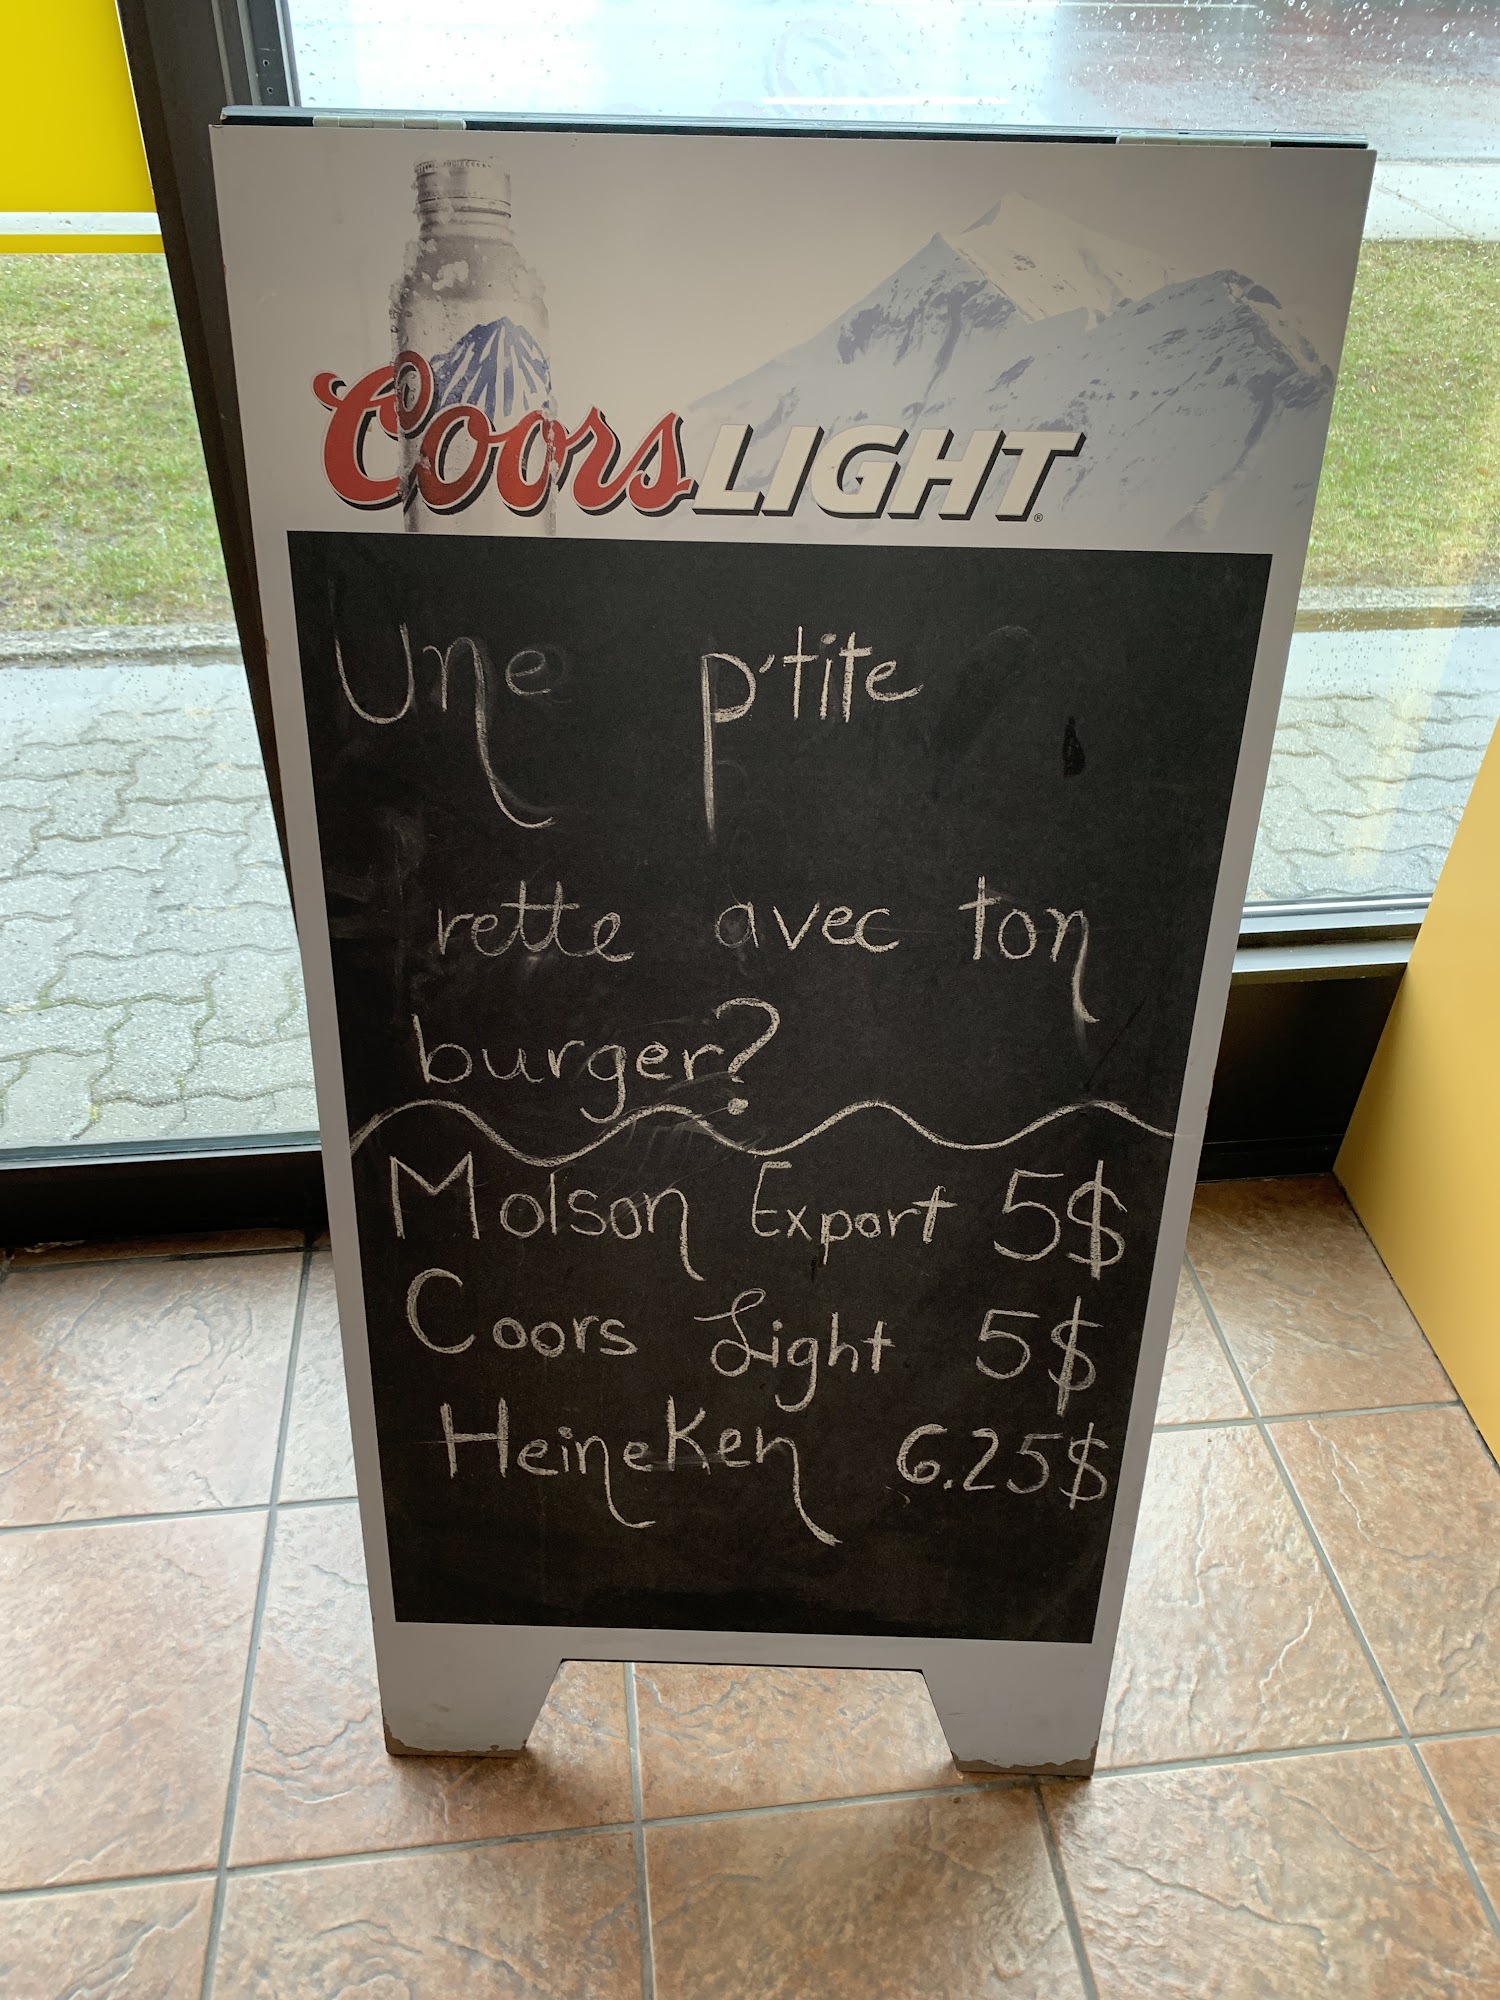 Coors LIGHT
Une p'tite
frette avec ton
burger?
Molson Export 5$
Coors Light 5$
Heineken 6.25$